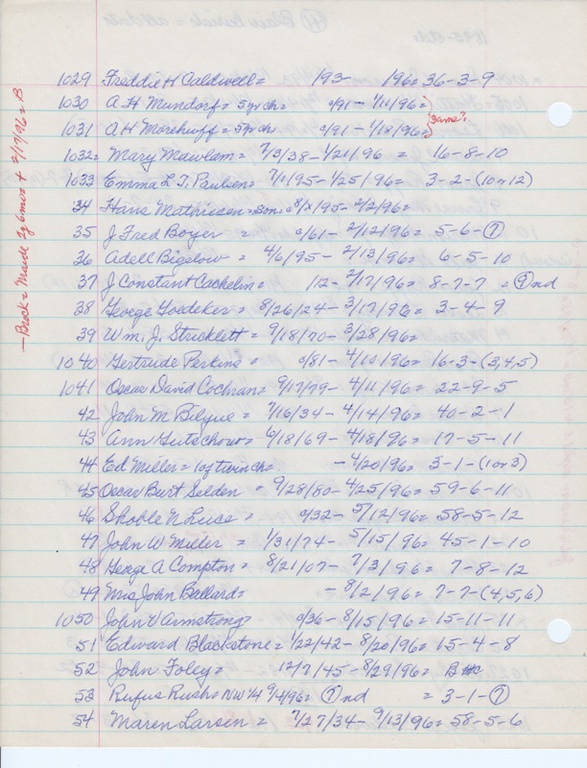 1029 Freddie H Caldwell = 193- 196= 36-3-9
1030 A.H. Mundorf = 5yr ch = c/91 - 1/11/96 =
same?
1031 A H Morehuff = 5yr ch c/91 - 1/18/96 =
1032 = Mary Mawlam = 7/3/38 - 1/21/96 = 16-8-10
1033 Emma L.T. Paulsen = 7/1/95 - 1/25/96 = 3-2-(10 or 12)
34 Hans Mathiesen = son = 8/x/95 - 2/2/96 =
35 J Fred Boyer = c/61 - 2/12/96 = 5-6-(7)
36 Adell Bigelow = 4/6/95 - 2/13/96 = 6-5-10
37 J Constant Cachelin = 12 - 2/17/96 = 8-7-7 = (?)nd
38 George Goedeker = 8/26/24 - 3/17/96 = 3-4-9
39 Wm. J. Stricklett = 9/18/70 - 3/28/96 =
1040 Gertrude Perkins = c/81 - 4/10/96 = 16-3-(3,4,5)
1041 Oscar David Cochran = 9/17/79 - 4/11/96 = 22-9-5
42 John M Bilyue = 7/16/34 - 4/14/96 = 40-2-1
43 Ann Gutschow = 6/18/69 - 4/18/96 = 17-5-11
44 Ed Miller = 1 of twin ch = - 4/20/96 = 3-1-(1 or 3)
45 Oscar Burt Selden = 9/28/80 - 4/25/96 = 59-6-11
46 Skoble N Luse = c/32 - 5/12/96 = 58-5-12
47 John W Miller = 1/31/74 - 5/15/96 = 45-1-10
48 George A Compton = 8/21/07 - 7/3/96 = 7-8-12
49 Mrs John Ballard = - 8/2/96 = 7-7-(4,5,6)
1050 John V Armstrong = c/36 - 8/15/96 = 15-11-11
51 Edward Blackstone = 1/22/42 - 8/20/96 = 15-4-8
52 John Foley = 12/7/45 - 8/29/96 = B
53 Rufus Rush = NW 1/4 9/4/96 = (?)nd = 3-1-(?)
54 Maren Larsen = 7/27/34 - 9/13/96 = 58-5-6